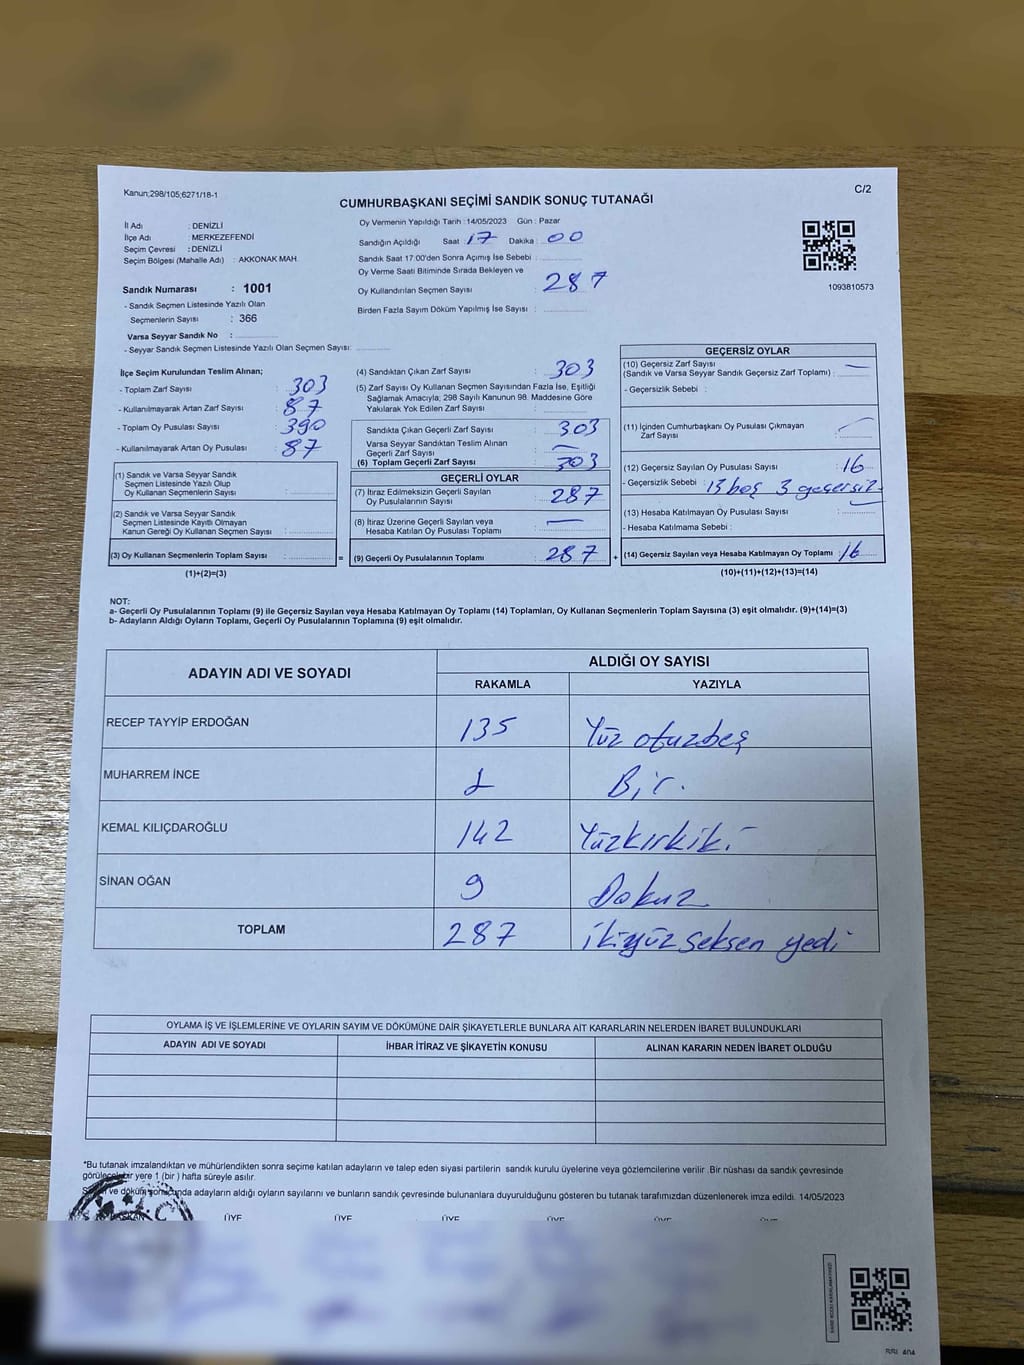 Kanun;298/105;6271/18-1
C/2
CUMHURBAŞKANI SEÇİMİ SANDIK SONUÇ TUTANAĞI
İl Adı : DENİZLİ
İlçe Adı : MERKEZEFENDİ
Seçim Çevresi : DENİZLİ
Seçim Bölgesi (Mahalle Adı) : AKKONAK MAH.
Sandık Numarası : 1001
- Sandık Seçmen Listesinde Yazılı Olan
Seçmenlerin Sayısı : 366
Varsa Seyyar Sandık No :
- Seyyar Sandık Seçmen Listesinde Yazılı Olan Seçmen Sayısı:
Oy Vermenin Yapıldığı Tarih : 14/05/2023 Gün : Pazar
Sandığın Açıldığı Saat : 17 Dakika : 00
Sandık Saat 17:00'den Sonra Açımış İse Sebebi :
Oy Verme Saati Bitiminde Sırada Bekleyen ve
Oy Kullandırılan Seçmen Sayısı : 287
Birden Fazla Sayım Döküm Yapılmış İse Sayısı :
1093810573
İlçe Seçim Kurulundan Teslim Alınan;
- Toplam Zarf Sayısı : 303
- Kullanılmayarak Artan Zarf Sayısı : 87
- Toplam Oy Pusulası Sayısı : 390
- Kullanılmayarak Artan Oy Pusulası : 87
(1) Sandık ve Varsa Seyyar Sandık
Seçmen Listesinde Yazılı Olup
Oy Kullanan Seçmenlerin Sayısı :
(2) Sandık ve Varsa Seyyar Sandık
Seçmen Listesinde Kayıtlı Olmayan
Kanun Gereği Oy Kullanan Seçmen Sayısı :
(3) Oy Kullanan Seçmenlerin Toplam Sayısı : =
(1)+(2)=(3)
(4) Sandıktan Çıkan Zarf Sayısı : 303
(5) Zarf Sayısı Oy Kullanan Seçmen Sayısından Fazla İse, Eşitliği
Sağlamak Amacıyla; 298 Sayılı Kanunun 98. Maddesine Göre
Yakılarak Yok Edilen Zarf Sayısı :
Sandıkta Çıkan Geçerli Zarf Sayısı : 303
Varsa Seyyar Sandıktan Teslim Alınan
Geçerli Zarf Sayısı : —
(6) Toplam Geçerli Zarf Sayısı : 303
GEÇERLİ OYLAR
(7) İtiraz Edilmeksizin Geçerli Sayılan
Oy Pusulalarının Sayısı : 287
(8) İtiraz Üzerine Geçerli Sayılan veya
Hesaba Katılan Oy Pusulası Toplamı : —
(9) Geçerli Oy Pusulalarının Toplamı : 287 +
GEÇERSİZ OYLAR
(10) Geçersiz Zarf Sayısı
(Sandık ve Varsa Seyyar Sandık Geçersiz Zarf Toplamı) : —
- Geçersizlik Sebebi :
(11) İçinden Cumhurbaşkanı Oy Pusulası Çıkmayan
Zarf Sayısı : —
(12) Geçersiz Sayılan Oy Pusulası Sayısı : 16
- Geçersizlik Sebebi : 13 boş 3 geçersiz
(13) Hesaba Katılmayan Oy Pusulası Sayısı :
- Hesaba Katılmama Sebebi :
(14) Geçersiz Sayılan veya Hesaba Katılmayan Oy Toplamı : 16
(10)+(11)+(12)+(13)=(14)
NOT:
a- Geçerli Oy Pusulalarının Toplamı (9) ile Geçersiz Sayılan veya Hesaba Katılmayan Oy Toplamı (14) Toplamları, Oy Kullanan Seçmenlerin Toplam Sayısına (3) eşit olmalıdır. (9)+(14)=(3)
b- Adayların Aldığı Oyların Toplamı, Geçerli Oy Pusulalarının Toplamına (9) eşit olmalıdır.
ADAYIN ADI VE SOYADI
ALDIĞI OY SAYISI
RAKAMLA YAZIYLA
RECEP TAYYİP ERDOĞAN 135 Yüz otuzbeş
MUHARREM İNCE 1 Bir.
KEMAL KILIÇDAROĞLU 142 Yüzkırkiki
SİNAN OĞAN 9 Dokuz
TOPLAM 287 ikiyüz seksen yedi
OYLAMA İŞ VE İŞLEMLERİNE VE OYLARIN SAYIM VE DÖKÜMÜNE DAİR ŞİKAYETLERLE BUNLARA AİT KARARLARIN NELERDEN İBARET BULUNDUKLARI
ADAYIN ADI VE SOYADI İHBAR İTİRAZ VE ŞİKAYETİN KONUSU ALINAN KARARIN NEDEN İBARET OLDUĞU
*Bu tutanak imzalandıktan ve mühürlendikten sonra seçime katılan adayların ve talep eden siyasi partilerin sandık kurulu üyelerine veya gözlemcilerine verilir .Bir nüshası da sandık çevresinde
görülecek bir yere 1 (bir ) hafta süreyle asılır.
ve döküm sonucunda adayların aldığı oyların sayılarını ve bunların sandık çevresinde bulunanlara duyurulduğunu gösteren bu tutanak tarafımızdan düzenlenerek imza edildi. 14/05/2023
BAŞKAN ÜYE ÜYE ÜYE ÜYE ÜYE ÜYE